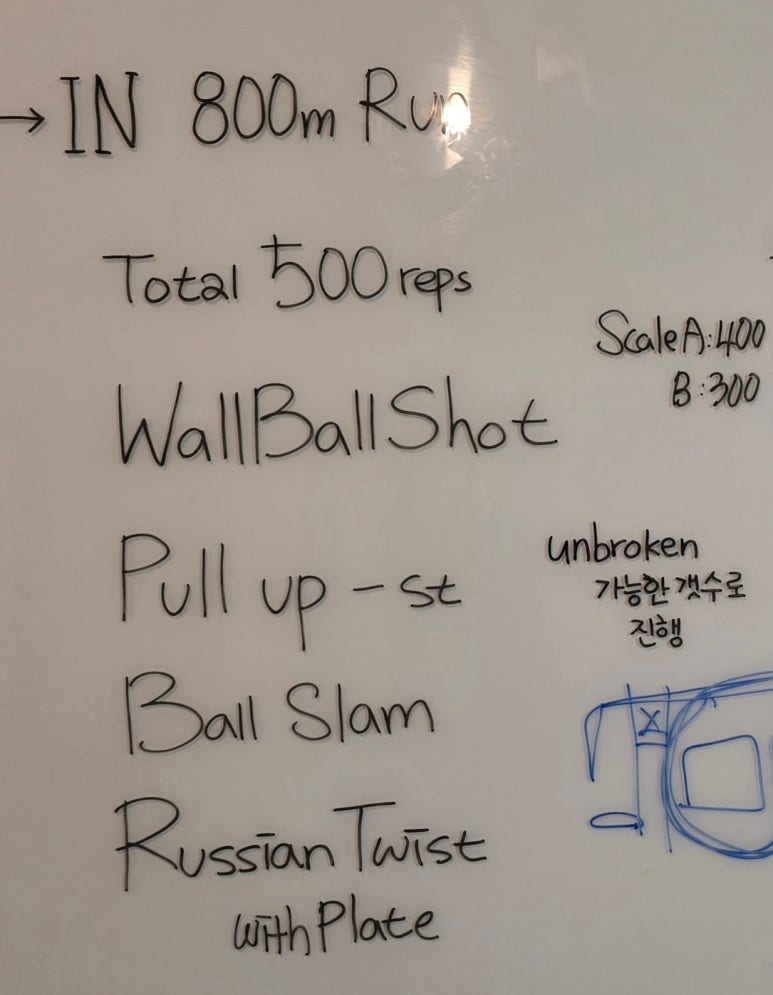 → IN 800m Run
Total 500 reps
Scale A: 400
B: 300
Wall Ball Shot
Pull up - st
unbroken
가능한 갯수로
진행
Ball Slam
X
Russian Twist
with Plate